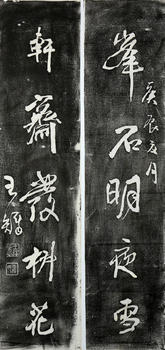 峯石明夜雪
庚辰夏月
軒齋發樹花
王鐸